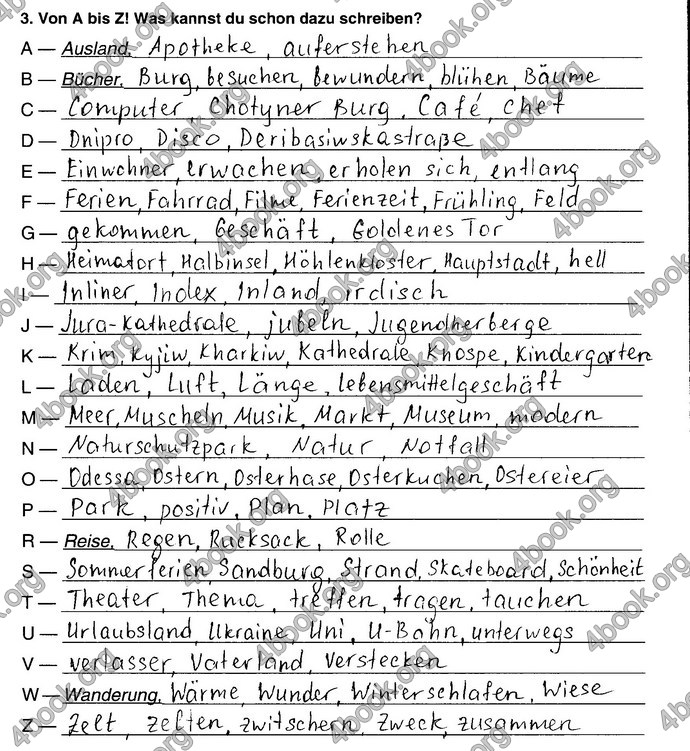 3. Von A bis Z! Was kannst du schon dazu schreiben?
A — Ausland, Apotheke, auferstehen
B — Bücher, Burg, besuchen, bewundern, blühen, Bäume
C — Computer, Chotyner Burg, Café, Chef
D — Dnipro, Disco, Deribasiwskastraße
E — Einwohner, erwachen, erholen sich, entlang
F — Ferien, Fahrrad, Filme, Ferienzeit, Frühling, Feld
G — gekommen, Geschäft, Goldenes Tor
H — Heimatort, Halbinsel, Höhlenkloster, Hauptstadt, hell
I — Inliner, Index, Inland, irdisch
J — Jura-Kathedrale, jubeln, Jugendherberge
K — Krim, Kyjiw, Kharkiw, Kathedrale, Khospe, Kindergarten
L — Laden, Luft, Länge, lebensmittelgeschäft
M — Meer, Muscheln, Musik, Markt, Museum, modern
N — Naturschutzpark, Natur, Notfall
O — Odessa, Ostern, Osterhase, Osterkuchen, Ostereier
P — Park, positiv, Plan, Platz
R — Reise, Regen, Rucksack, Rolle
S — Sommerferien, Sandburg, Strand, Skateboard, Schönheit
T — Theater, Thema, treffen, tragen, tauchen
U — Urlaubsland, Ukraine, Uni, U-Bahn, unterwegs
V — verlasser, Vaterland, Verstecken
W — Wanderung, Wärme, Wunder, Winterschlafen, Wiese
Z — Zelt, zelten, zwitschern, Zweck, zusammen
4book.org